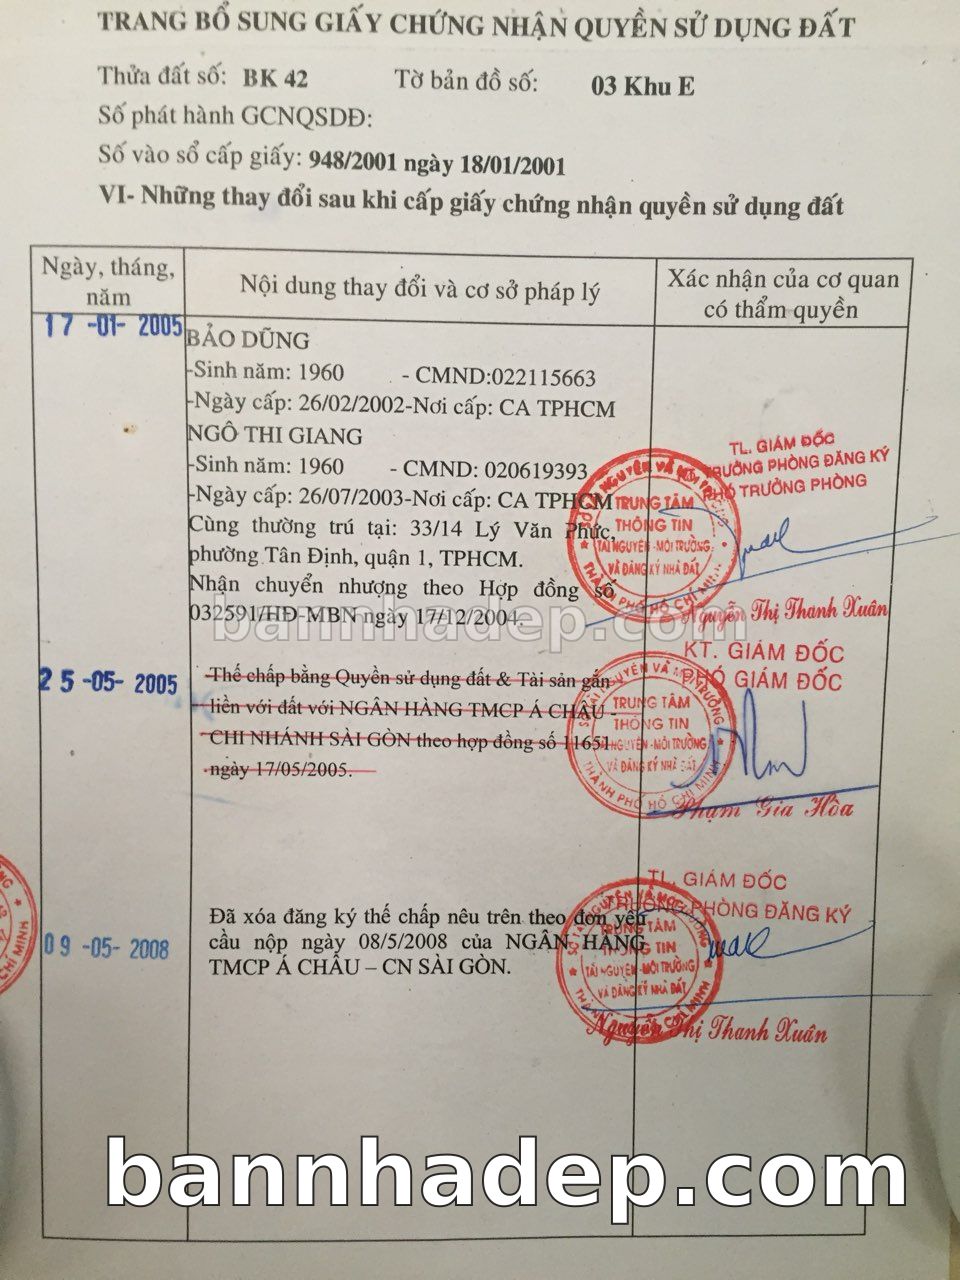 TRANG BỔ SUNG GIẤY CHỨNG NHẬN QUYỀN SỬ DỤNG ĐẤT
Thửa đất số: BK 42 Tờ bản đồ số: 03 Khu E
Số phát hành GCNQSDĐ:
Số vào sổ cấp giấy: 948/2001 ngày 18/01/2001
VI- Những thay đổi sau khi cấp giấy chứng nhận quyền sử dụng đất
Ngày, tháng,
năm
Nội dung thay đổi và cơ sở pháp lý
Xác nhận của cơ quan
có thẩm quyền
17 -01- 2005
BẢO DŨNG
-Sinh năm: 1960 - CMND:022115663
-Ngày cấp: 26/02/2002-Nơi cấp: CA TPHCM
NGÔ THI GIANG
-Sinh năm: 1960 - CMND: 020619393
-Ngày cấp: 26/07/2003-Nơi cấp: CA TPHCM
Cùng thường trú tại: 33/14 Lý Văn Phức,
phường Tân Định, quận 1, TPHCM.
Nhận chuyển nhượng theo Hợp đồng số
032591/HĐ-MBN ngày 17/12/2004.
TL. GIÁM ĐỐC
TRƯỞNG PHÒNG ĐĂNG KÝ
PHÓ TRƯỞNG PHÒNG
TRUNG TÂM
THÔNG TIN
TÀI NGUYÊN - MÔI TRƯỜNG
VÀ ĐĂNG KÝ NHÀ ĐẤT
THÀNH PHỐ HỒ CHÍ MINH
Nguyễn Thị Thanh Xuân
bannhadep.com
25 -05- 2005
Thế chấp bằng Quyền sử dụng đất & Tài sản gắn
liền với đất với NGÂN HÀNG TMCP Á CHÂU -
CHI NHÁNH SÀI GÒN theo hợp đồng số 11651
ngày 17/05/2005.
KT. GIÁM ĐỐC
PHÓ GIÁM ĐỐC
SỞ TÀI NGUYÊN VÀ MÔI TRƯỜNG
TRUNG TÂM
THÔNG TIN
TÀI NGUYÊN - MÔI TRƯỜNG
VÀ ĐĂNG KÝ NHÀ ĐẤT
THÀNH PHỐ HỒ CHÍ MINH
Phạm Gia Hòa
09 -05- 2008
Đã xóa đăng ký thế chấp nêu trên theo đơn yêu
cầu nộp ngày 08/5/2008 của NGÂN HÀNG
TMCP Á CHÂU – CN SÀI GÒN.
TL. GIÁM ĐỐC
TRƯỞNG PHÒNG ĐĂNG KÝ
TRUNG TÂM
THÔNG TIN
TÀI NGUYÊN - MÔI TRƯỜNG
VÀ ĐĂNG KÝ NHÀ ĐẤT
Nguyễn Thị Thanh Xuân
bannhadep.com